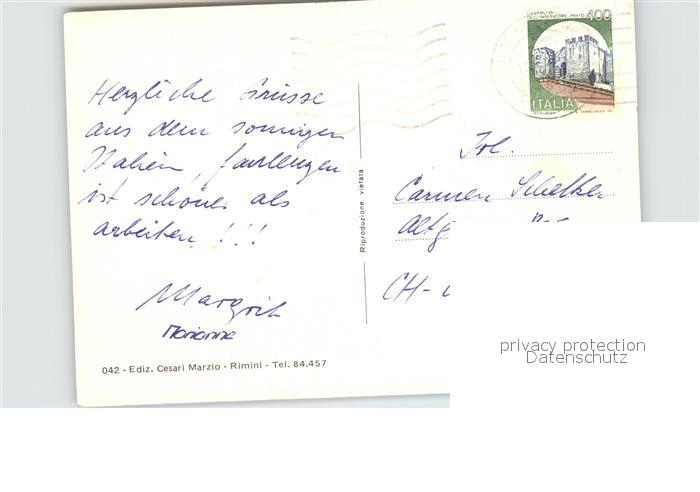 Herzliche Grüsse
aus dem sonnigen
Italien, faulenzen
ist schöner als
arbeiten !!!
Margrit
Marianna
042 - Ediz. Cesari Marzio - Rimini - Tel. 84.457
Riproduzione vietata
CASTELLO
DELL'IMPERATORE - PRATO
400
ITALIA
Frl.
Carmen
Altg
CH-
privacy protection
Datenschutz